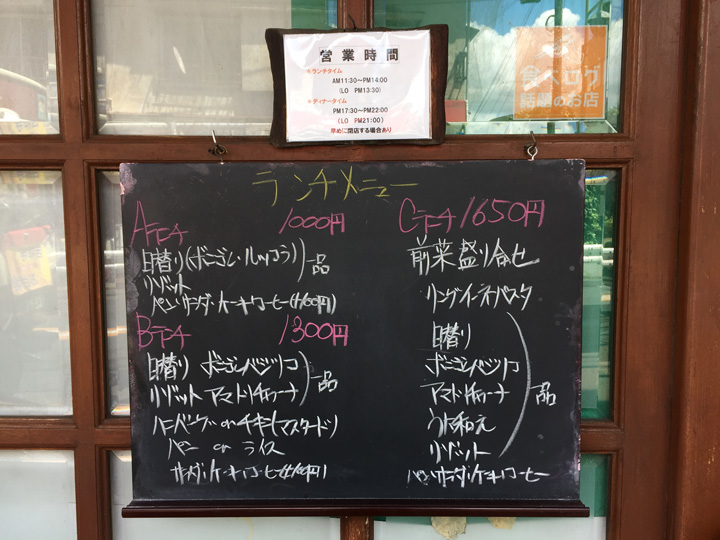 営業時間
＊ランチタイム
AM11:30～PM14:00
(LO PM13:30)
＊ディナータイム
PM17:30～PM22:00
(LO PM21:00)
早めに閉店する場合あり
食べログ
話題のお店
ランチメニュー
Aランチ 1000円
日替り(ボロニゴレ・ルッコラ) 一品
リゾット
パン・サラダ・ケーキ・コーヒー(+100円)
Bランチ 1300円
日替り ボロニゴレバジリコ
リゾット アマトリチャーナ 一品
ハンバーグ or チキン(マスタード)
パン or ライス
サラダ・ケーキ・コーヒー(+100円)
Cランチ 1650円
前菜盛り合せ
リングイーネパスタ
日替り
ボロニゴレバジリコ
アマトリチャーナ 一品
リゾット
パン・サラダ・ケーキ・コーヒー